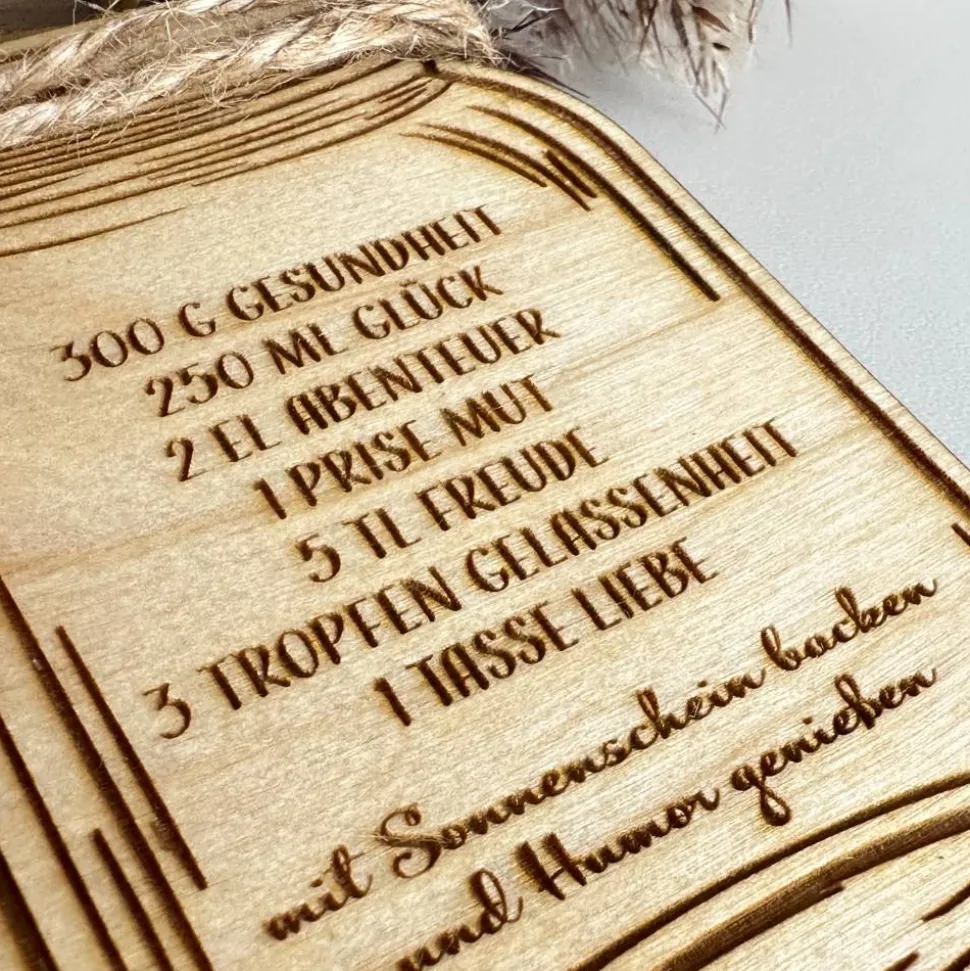 300 G GESUNDHEIT
250 ML GLÜCK
2 EL ABENTEUER
1 PRISE MUT
5 TL FREUDE
3 TROPFEN GELASSENHEIT
1 TASSE LIEBE
mit Sonnenschein backen
und Humor genießen